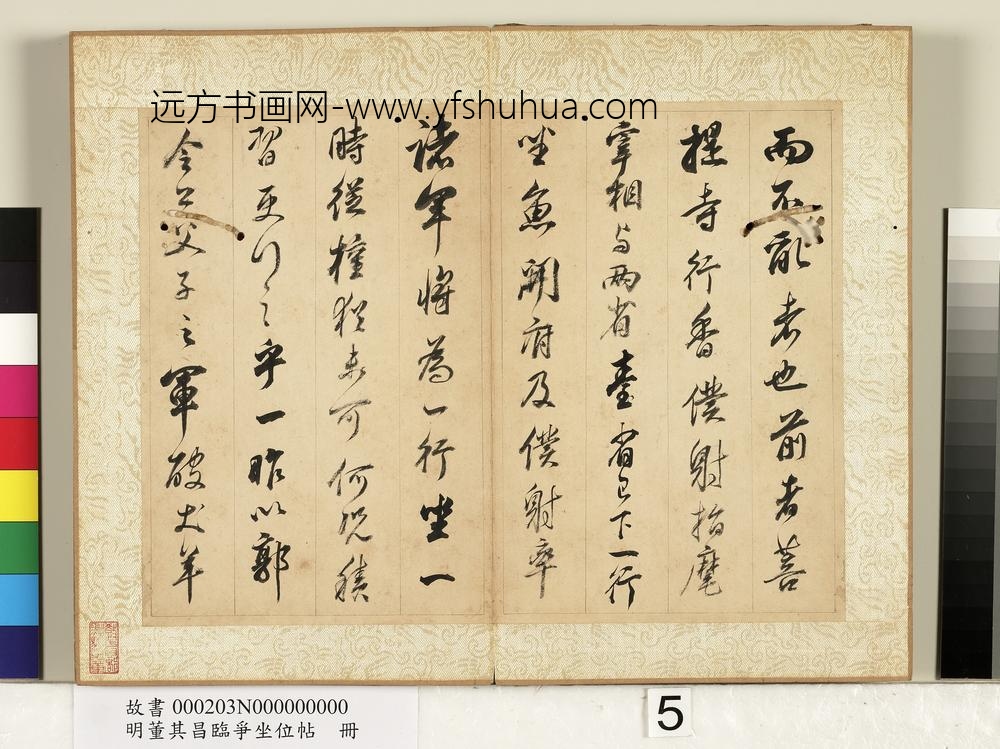 远方书画网-www.yfshuhua.com
而不厭者也前者菩
提寺行香僕射指麾
宰相与兩省臺省已下一行
坐魚開府及僕射率
諸軍將為一行坐一
時從權猶未可何況積
習更行之乎一昨以郭
令公父子之軍破犬羊
故書000203N000000000
明董其昌臨爭坐位帖 冊
5